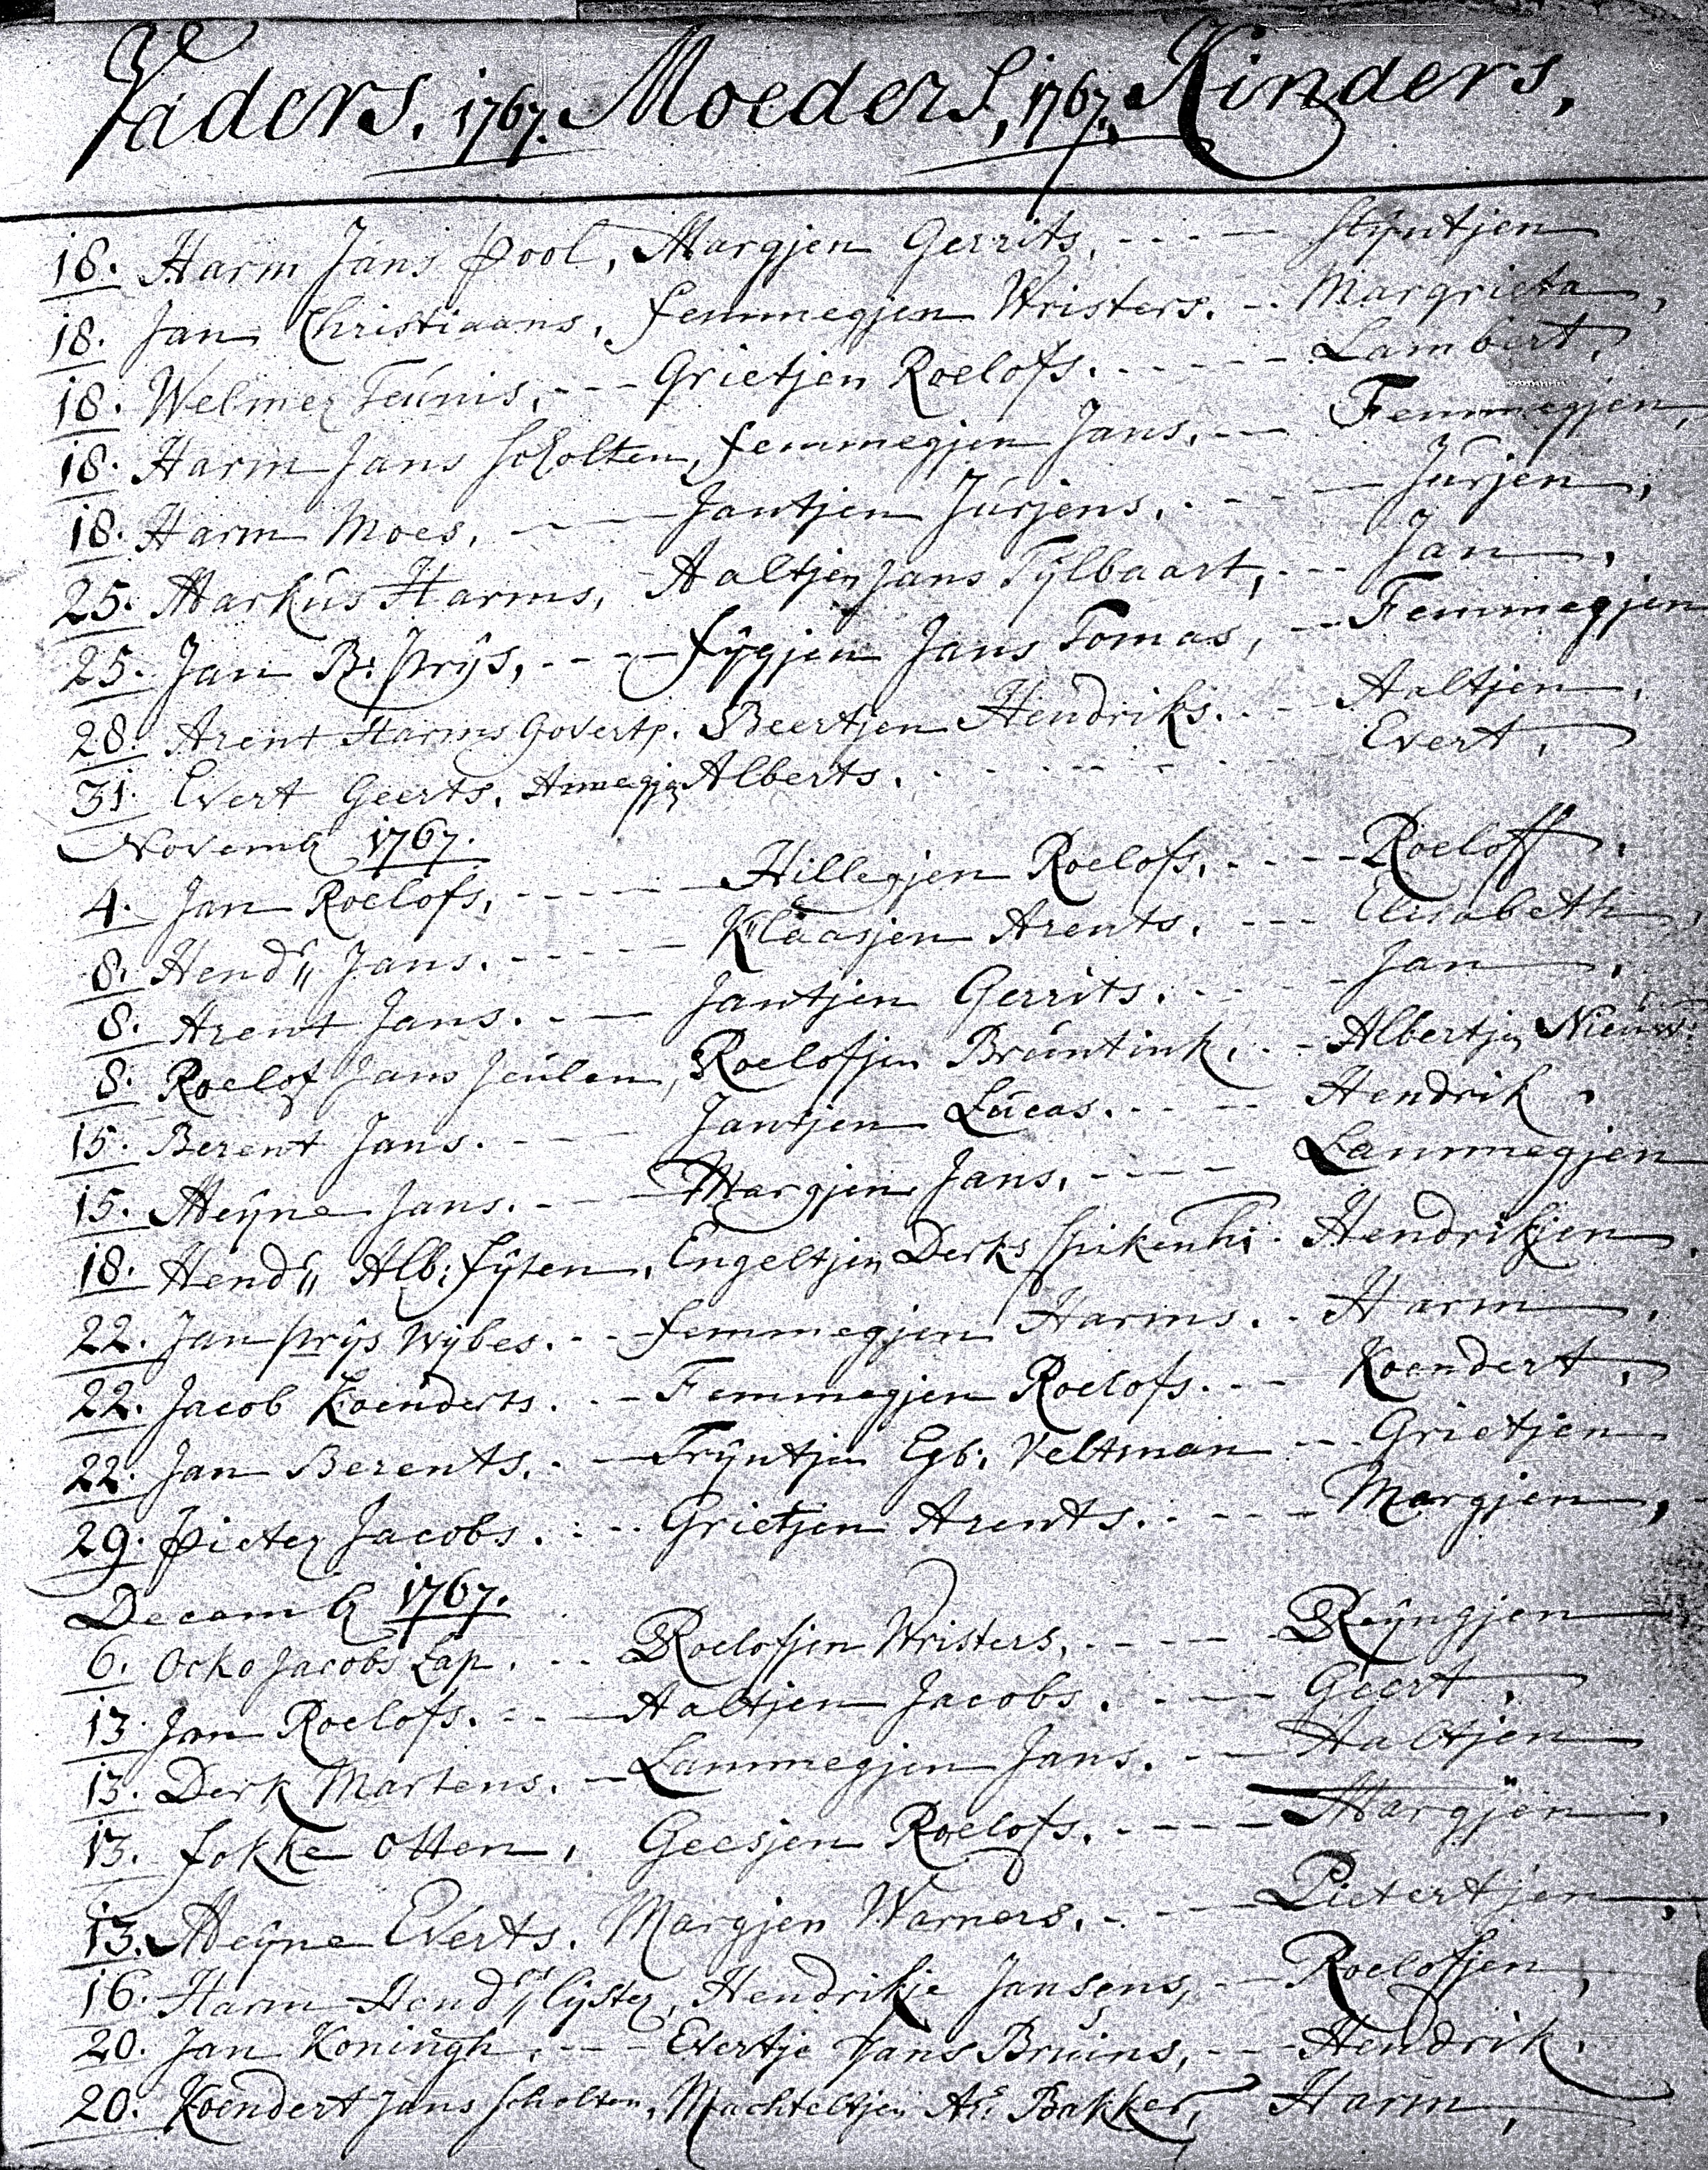 Vaders. 1767. Moeders, 1767. Kinders,
18. Harm Jans Pool, Margjen Gerrits, - - - Stÿntjen
18. Jan Christiaans, Femmegjen Wristers. - - Margrieta,
18. Welmer Teunis, - - - Grietjen Roelofs. - - - - - Lambert,
18. Harm Jans Scholten, Femmegjen Jans, - - Femmegjen,
18. Harm Moes, - - - Jantjen Jurjens. - - - Jurjen,
25. Markus Harms, - Aaltjen Jans Tÿlbaart, - - - Jan,
25. Jan B: Prÿs, - - - - Fÿgjen Jans Tomas, - - Femmegjen
28. Arent Harms Govertz. Beertjen Hendriks. - - Aaltjen,
31. Evert Geerts, Annegjen Alberts. - - - - - Evert,
Novemb 1767.
4. Jan Roelofs, - - - - - Hillegjen Roelofs. - - - - Roeloff,
8. Hendr" Jans. - - - - - Klaasjen Arents. - - - Elisabeth,
8. Arent Jans. - - - Jantjen Gerrits. - - - - Jan,
8. Roelof Jans Jeulen, Roelofjen Bruntink, - - Albertjen Nieuw:
15. Berent Jans. - - - Jantjen Lucas. - - - - Hendrik.
15. Meÿne Jans. - - - Margjen Jans, - - - - Lammegjen
18. Hendr" Alb: Fÿten, Engeltjen Derks - Hendrikjen,
22. Jan Prÿs Wÿbes. - - - Femmegjen Harms. - - Harm,
22. Jacob Koenderts. - - Femmegjen Roelofs. - - - Koendert,
22. Jan Berents. - - Trÿntjen Egb: Veltman - - Grietjen
29. Pieter Jacobs. - - - Grietjen Arents. - - - - Margjen,
Decemb 1767.
6. Ocko Jacobs Lap. - - Roelofjen Wristers, - - - - Reÿngjen
13. Jan Roelofs. - - - Aaltjen Jacobs. - - - Geert,
13. Derk Martens. - Lammegjen Jans. - - - Aaltjen
13. Fokke Otten, Geesjen Roelofs. - - - - Margjen,
13. Meÿne Everts. Margjen Warners. - - - - Pietertjen,
16. Harm Hendr" Slÿster, Hendrikje Jansens, - - Roelofjen,
20. Jan Koningh, - - - Evertje Jans Bruins, - - - Hendrik.
20. Koendert Jans Scholten, Machteltjen Ar: Bakker, Harm,